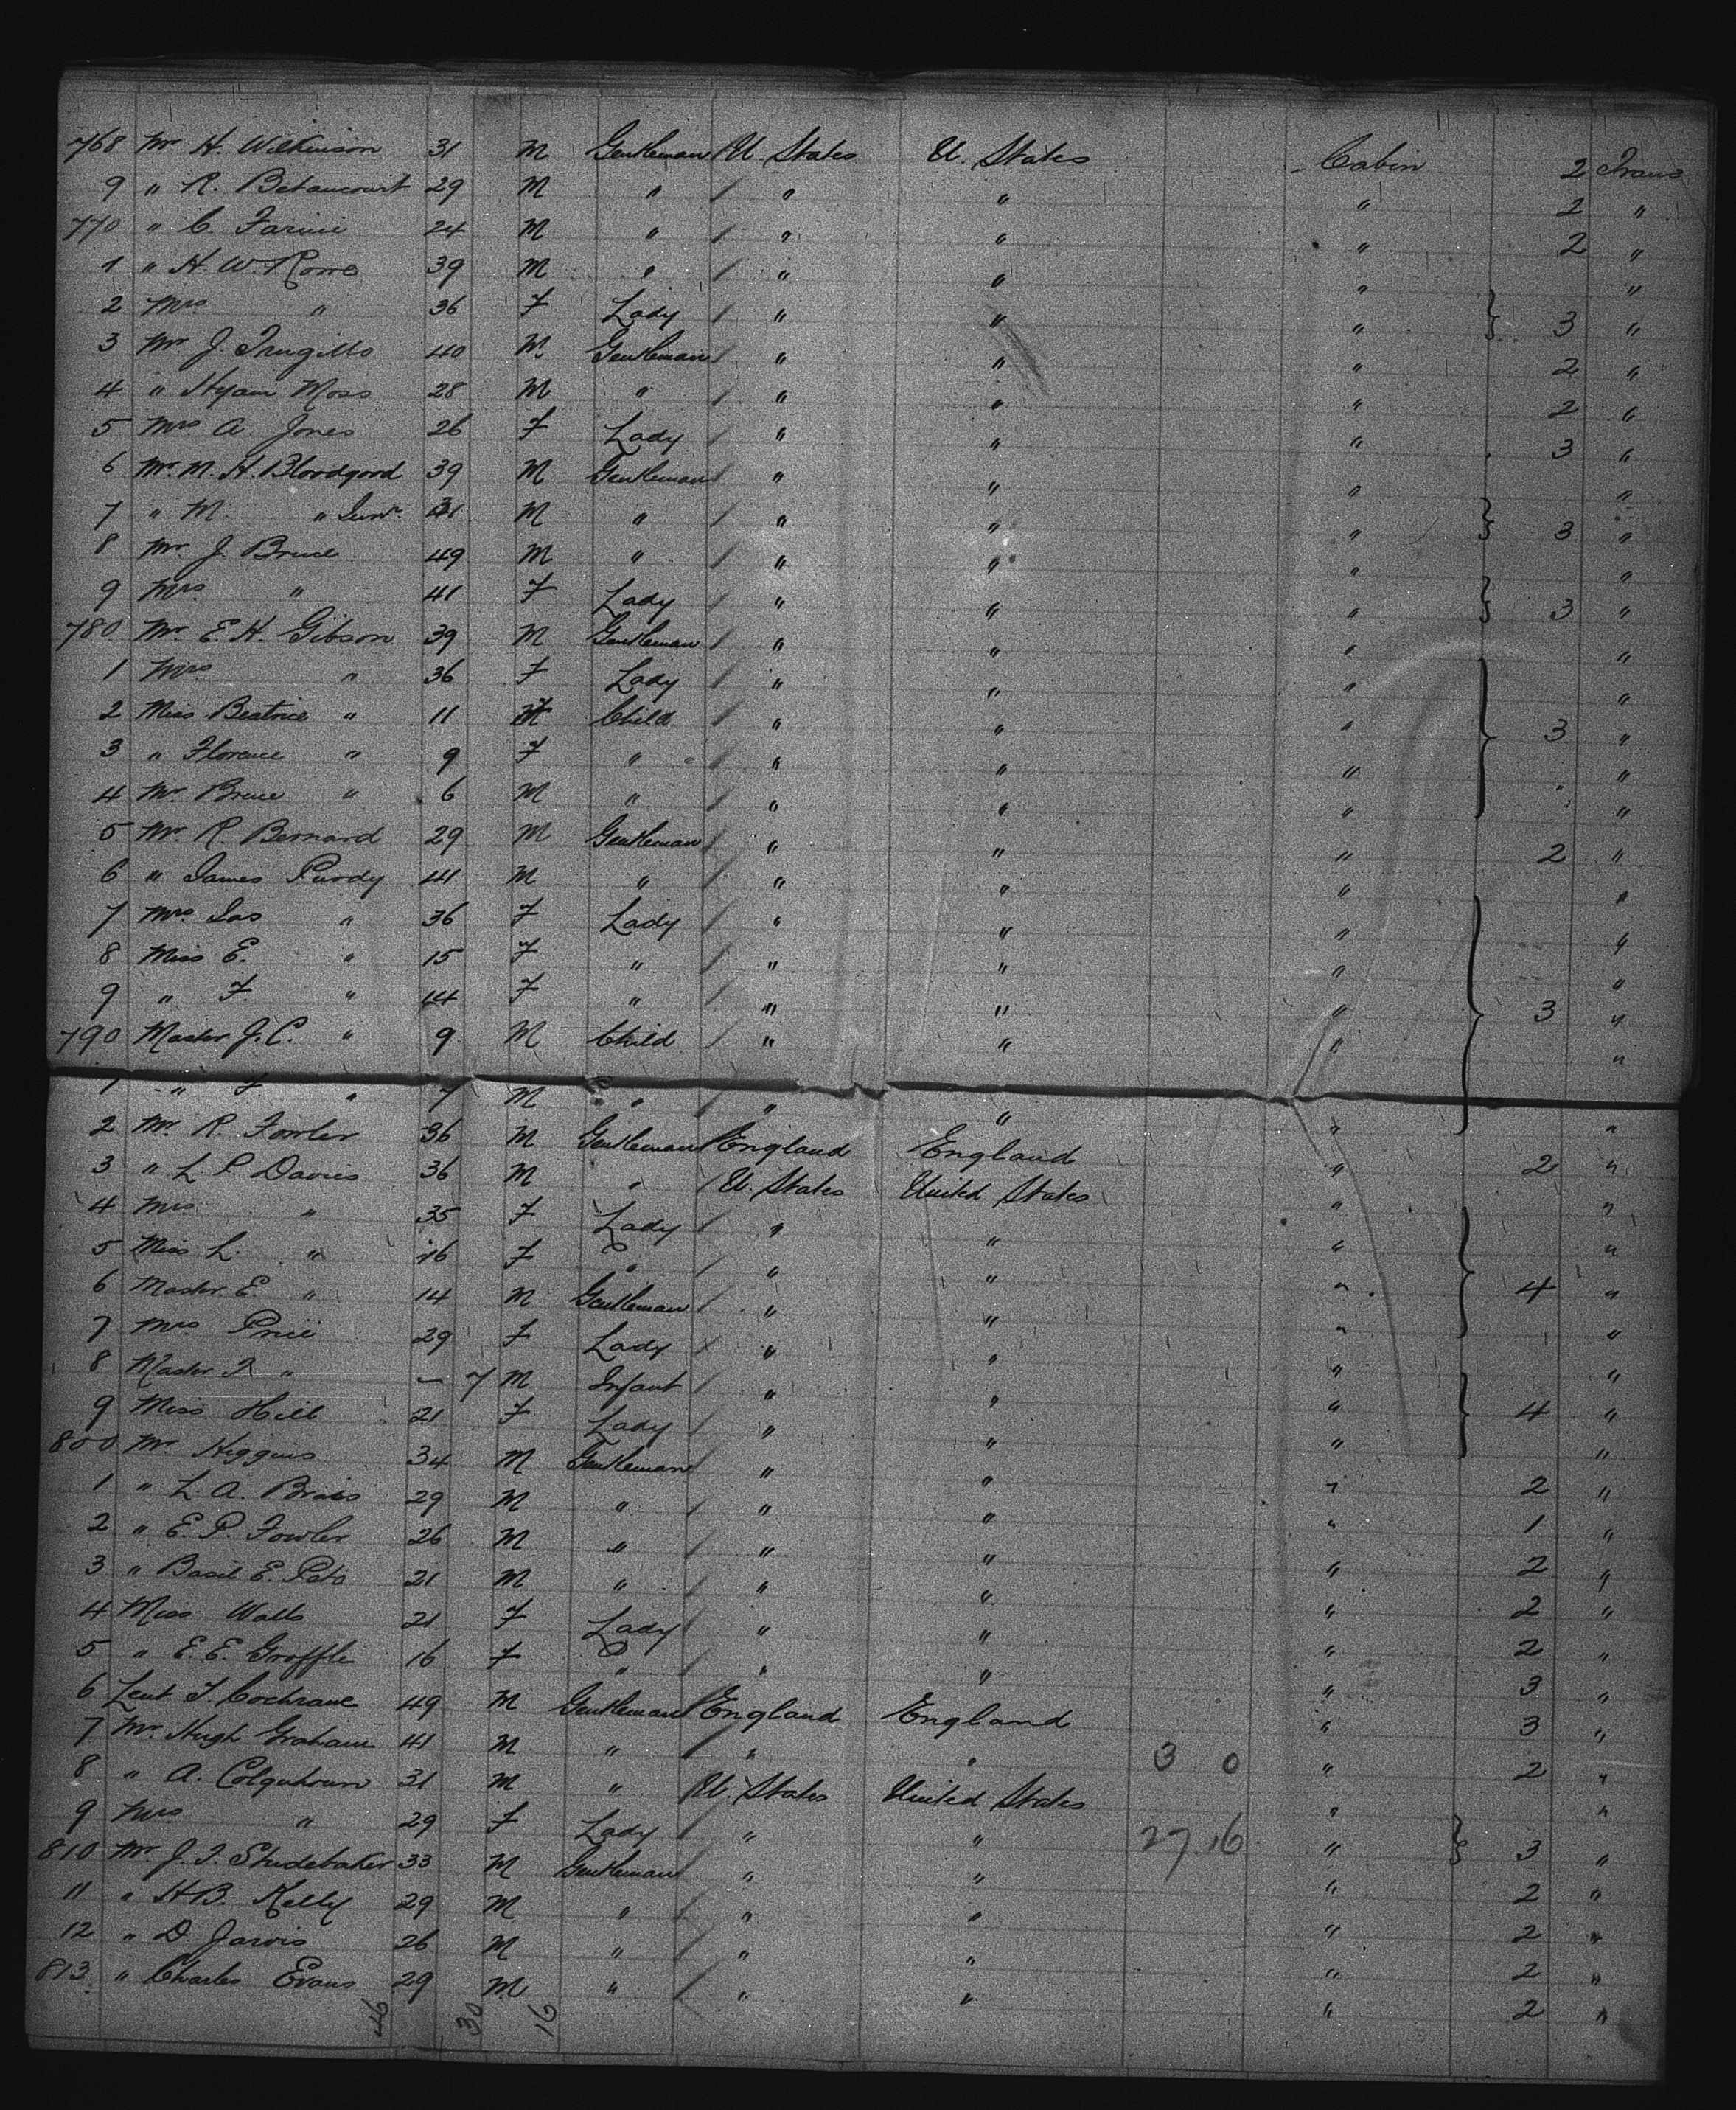 768 Mr H. Wilkinson 31 M Gentleman U. States U. States Cabin 2 Trans
9 " R. Betancourt 29 M " " " " 2 "
770 " C. Farini 24 M " " " " 2 "
1 " H. W. Rowe 39 M " " " " "
2 Mrs " 36 F Lady " " " } 3 "
3 Mr J. Trugillo 40 M Gentleman " " " 2 "
4 " Hyam Moss 28 M " " " " 2 "
5 Mrs A. Jones 26 F Lady " " " 3 "
6 Mr. M. H. Bloodgood 39 M Gentleman " " " "
7 " M. " Junr. M " " " " } 3 "
8 Mr J. Bruce 49 M " " " " "
9 Mrs " 41 F Lady " " " } 3 "
780 Mr E. H. Gibson 39 M Gentleman " " " "
1 Mrs " 36 F Lady " " " "
2 Miss Beatrice " 11 F Child " " " } 3 "
3 " Florence " 9 F " " " " "
4 Mr. Bruce " 6 M " " " " "
5 Mr. R. Bernard 29 M Gentleman " " " 2 "
6 " James Purdy 41 M " " " " "
7 Mrs Jas " 36 F Lady " " " "
8 Miss E. " 15 F " " " " "
9 " F. " 14 F " " " " } 3 "
790 Master J. C. " 9 M Child " " " "
1 " F. " 7 M " " " " "
2 Mr. R. Fowler 36 M Gentleman England England " 2 "
3 " L P Davies 36 M " U. States United States " "
4 Mrs " 35 F Lady " " " "
5 Miss L. " 16 F " " " " } 4 "
6 Master E. " 14 M Gentleman " " " "
7 Mrs Price 29 F Lady " " " "
8 Master " – 7 M Infant " " " } 4 "
9 Miss Hill 21 F Lady " " " "
800 Mr Higgins 34 M Gentleman " " " 2 "
1 " L. A. 29 M " " " " 1 "
2 " E. P. Fowler 26 M " " " " 2 "
3 " Basil E. 21 M " " " " 2 "
4 Miss Walls 21 F Lady " " " 2 "
5 " E. E. Groffle 16 F " " " " 3 "
6 Leut T. Cochrane 49 M Gentleman England England " 3 "
7 Mr. Hugh Graham 41 M " " " 3 0 " 2 "
8 " A. Colquhoun 31 M " U. States United States " "
9 Mrs " 29 F Lady " " 27.16 " } 3 "
810 Mr. J. T. Studebaker 33 M Gentleman " " " 2 "
11 " H B. Kelly 29 M " " " " 2 "
12 " D. Jarvis 26 M " " " " 2 "
813 " Charles Evans 29 M " " " " 2 "
46 30 16